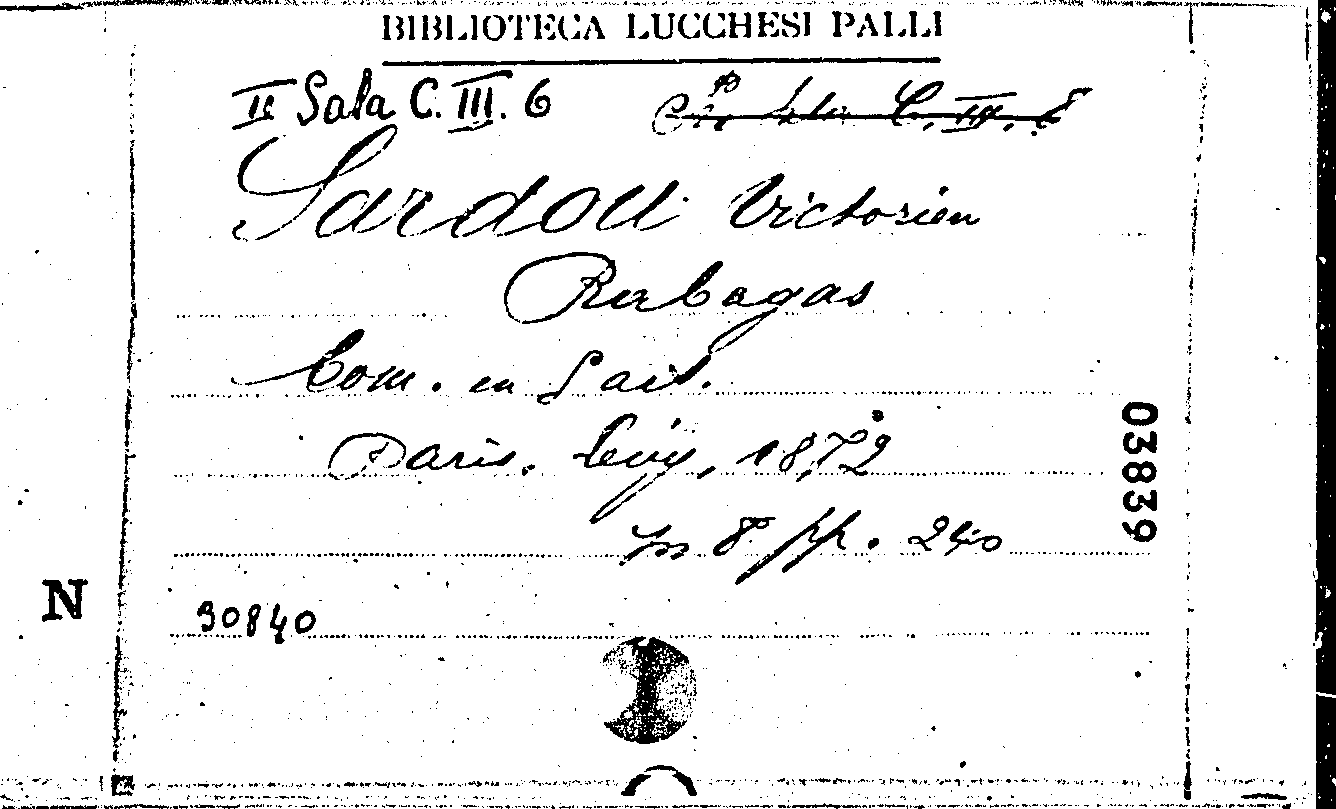 BIBLIOTECA LUCCHESI PALLI
IIª Sala C. III. 6
C. III. 8
Sardou Victorien
Rabagas
Com. en 5 act.
Paris. Lévy, 1872
in 8° pp. 240
03839
N
30840